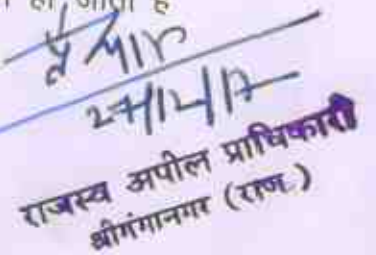 हो जाता है
27/12/17
राजस्व अपील प्राधिकारी
श्रीगंगानगर (राज.)